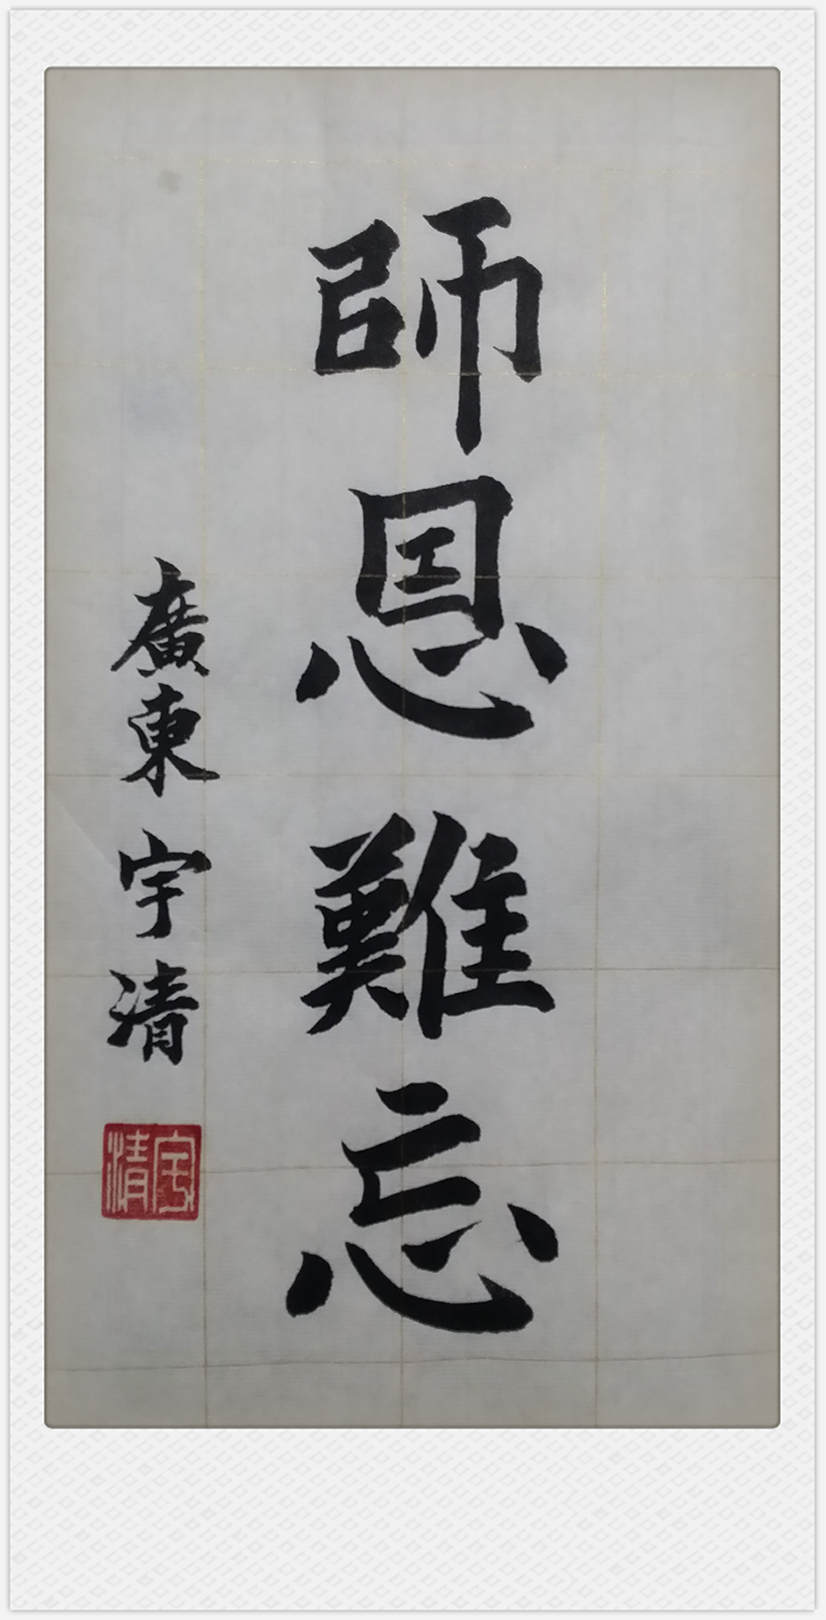 師恩難忘
廣東宇清
宇清